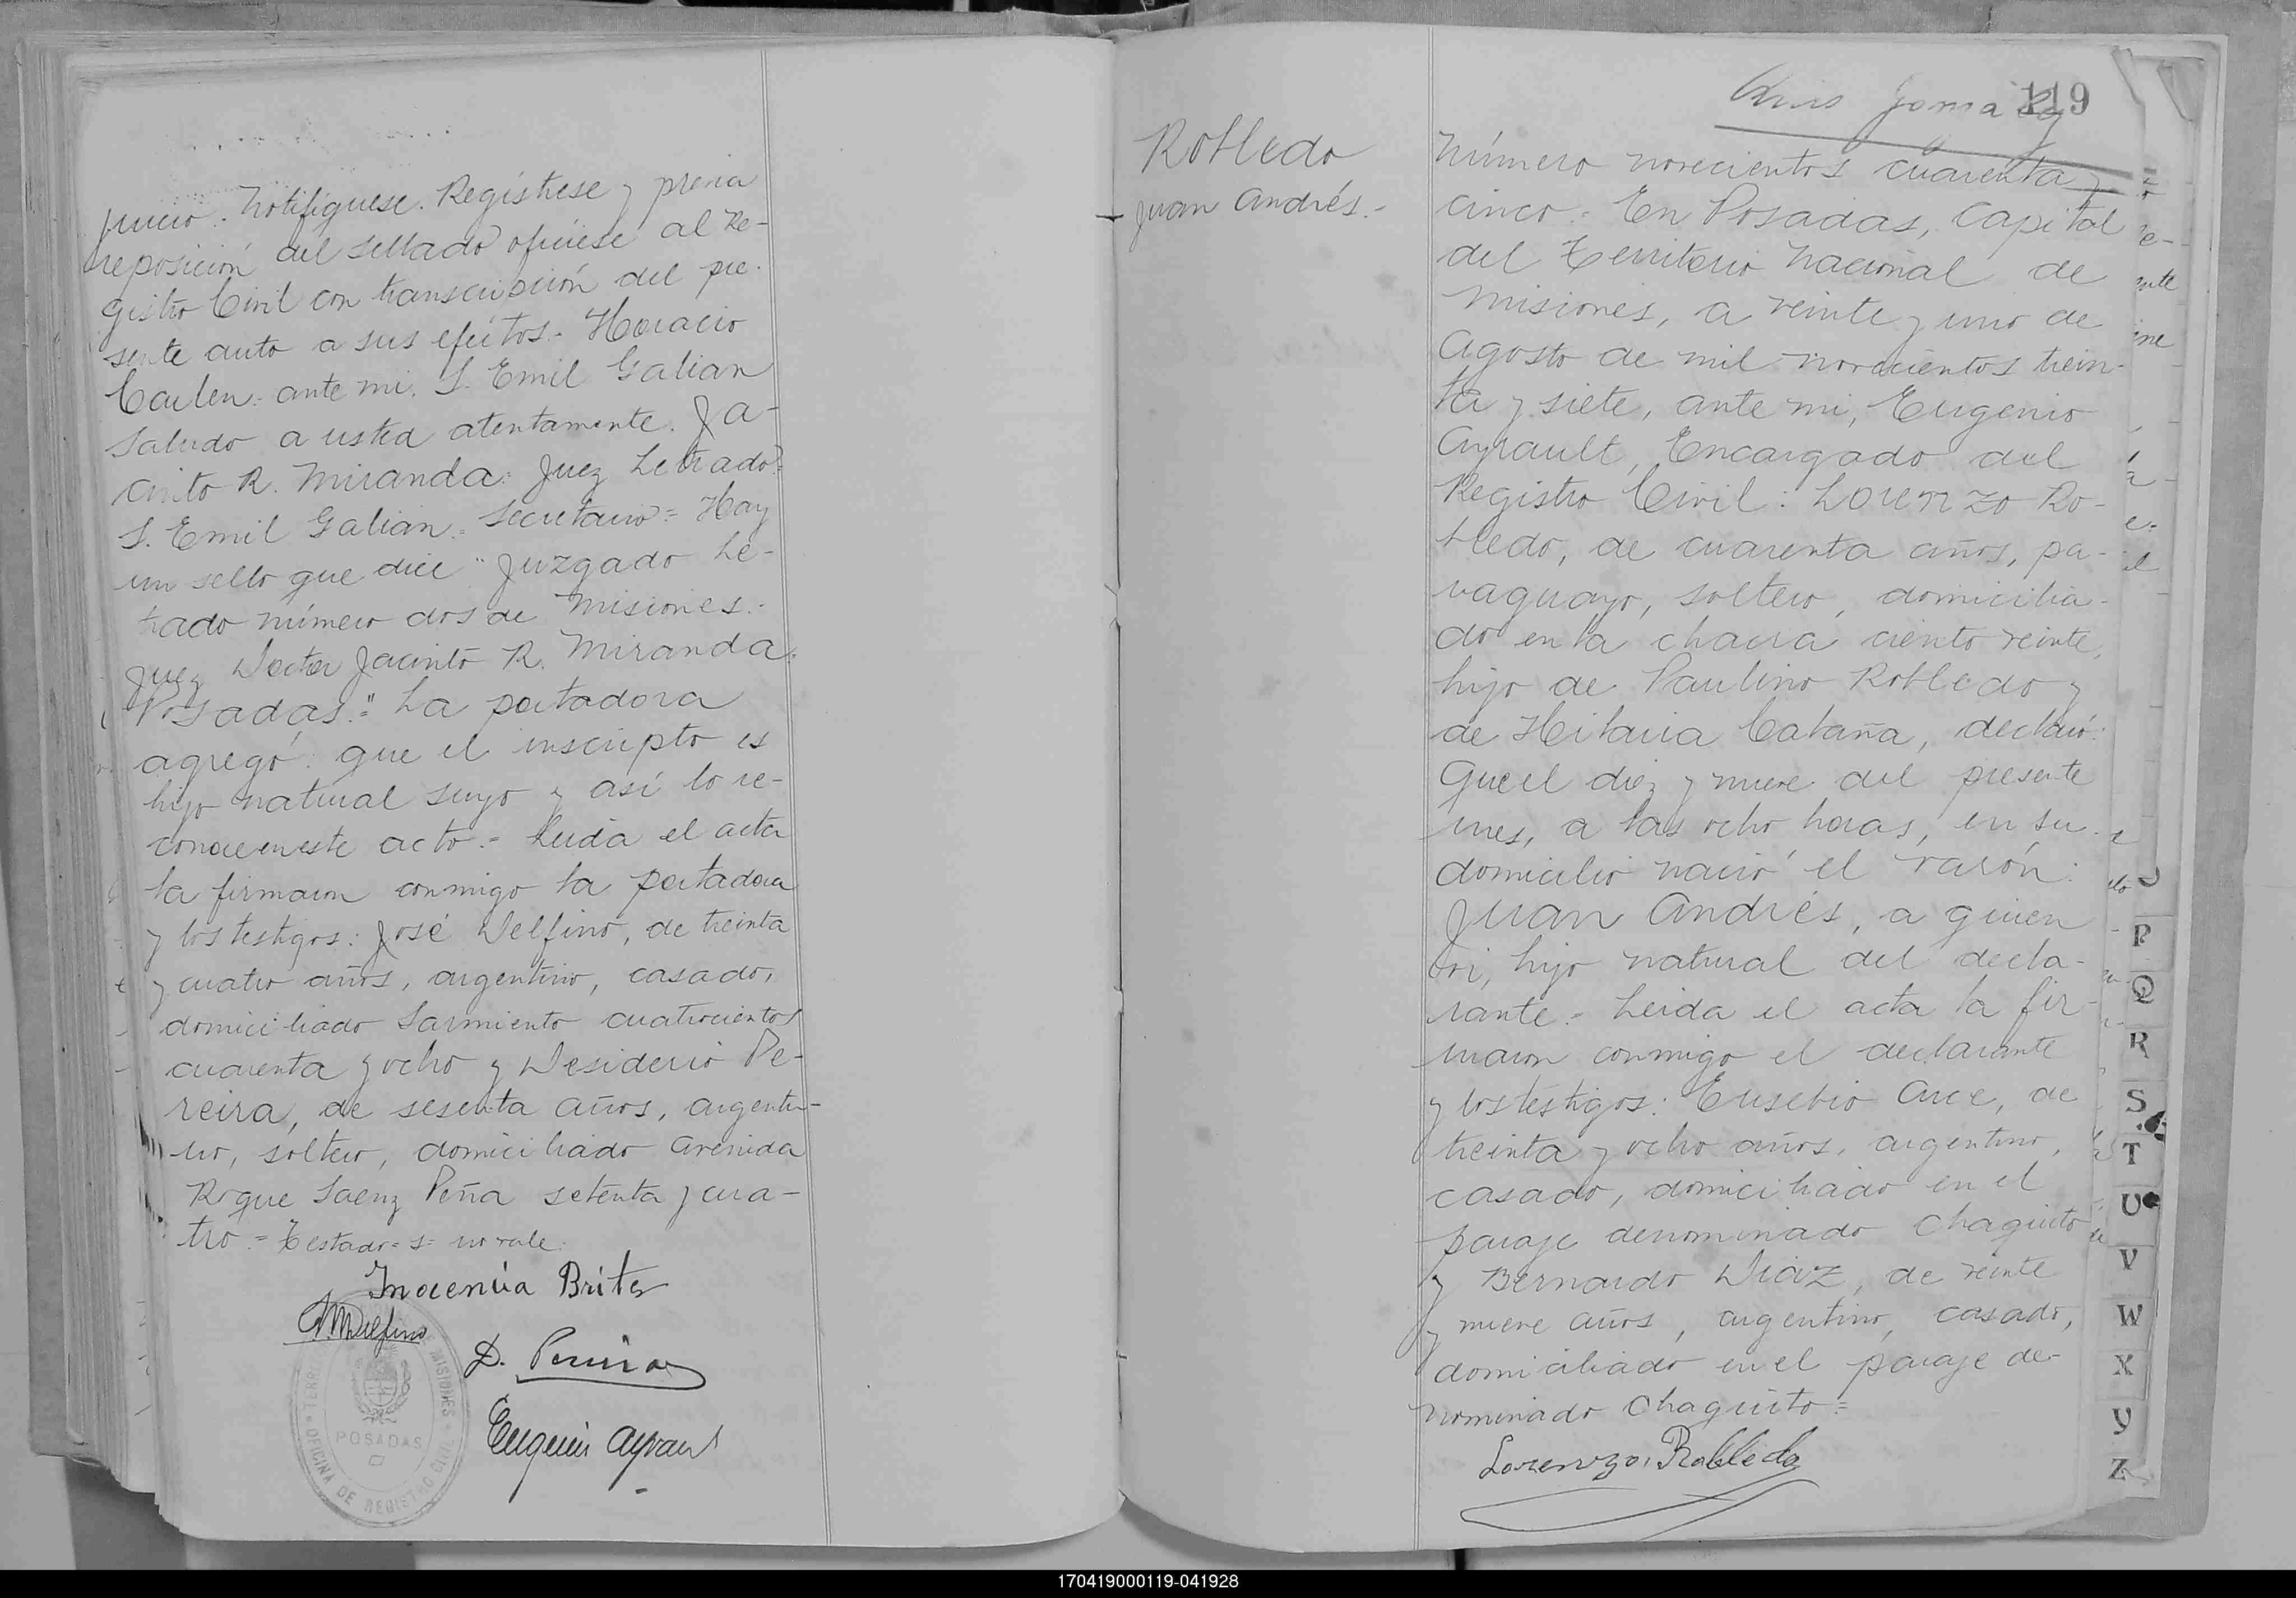 juicio. Notifíquese. Regístrese y previa
reposición del sellado ofíciese al Re-
gistro Civil con transcripción del pre-
sente auto a sus efectos.- Horacio
Carlen: ante mi. S. Emil Galian
Saludo a usted atentamente. Ja-
cinto R. Miranda: Juez Letrado=
S. Emil Galian= Secretario= Hay
un sello que dice "Juzgado Le-
trado número dos de Misiones.-
Juez Doctor Jacinto R. Miranda.
Posadas."= La portadora
agregó: que el inscripto es
hijo natural suyo y así lo re-
conoce en este acto.- Leída el acta
la firmaron conmigo la portadora
y los testigos: José Delfino, de treinta
y cuatro años, argentino, casado,
domiciliado Sarmiento cuatrocientos
cuarenta y ocho y Desiderio Pe-
reira, de sesenta años, argenti-
no, soltero, domiciliado Avenida
Roque Saenz Peña setenta y cua-
tro.= Testado= s= no vale.
Inocencia Brites
Delfino
D. Pereira
Eugenio Ayrault
MISIONES
POSADAS
OFICINA DE REGISTRO CIVIL
119
Robledo
Juan Andrés.-
Número novecientos cuarenta y
cinco.= En Posadas, Capital
del Territorio Nacional de
Misiones, a veinte y uno de
Agosto de mil novecientos trein-
ta y siete, ante mi, Eugenio
Ayrault, Encargado del
Registro Civil: Lorenzo Ro-
bledo, de cuarenta años, pa-
raguayo, soltero, domicilia-
do en la chacra ciento veinte,
hijo de Paulino Robledo y
de Hilaria Cataña, declaró:
Que el diez y nueve del presente
mes, a las ocho horas, en su
domicilio nació el varón:
Juan Andrés, a quien
vi, hijo natural del decla-
rante.- Leída el acta la fir-
maron conmigo el declarante
y los testigos: Eusebio Arce, de
treinta y ocho años, argentino,
casado, domiciliado en el
paraje denominado Chaquito
y Bernardo Diaz, de veinte
y nueve años, argentino, casado,
domiciliado en el paraje de-
nominado Chaquito=
Lorenzo Robledo
P
Q
R
S
T
U
V
W
X
Y
Z
170419000119-041928